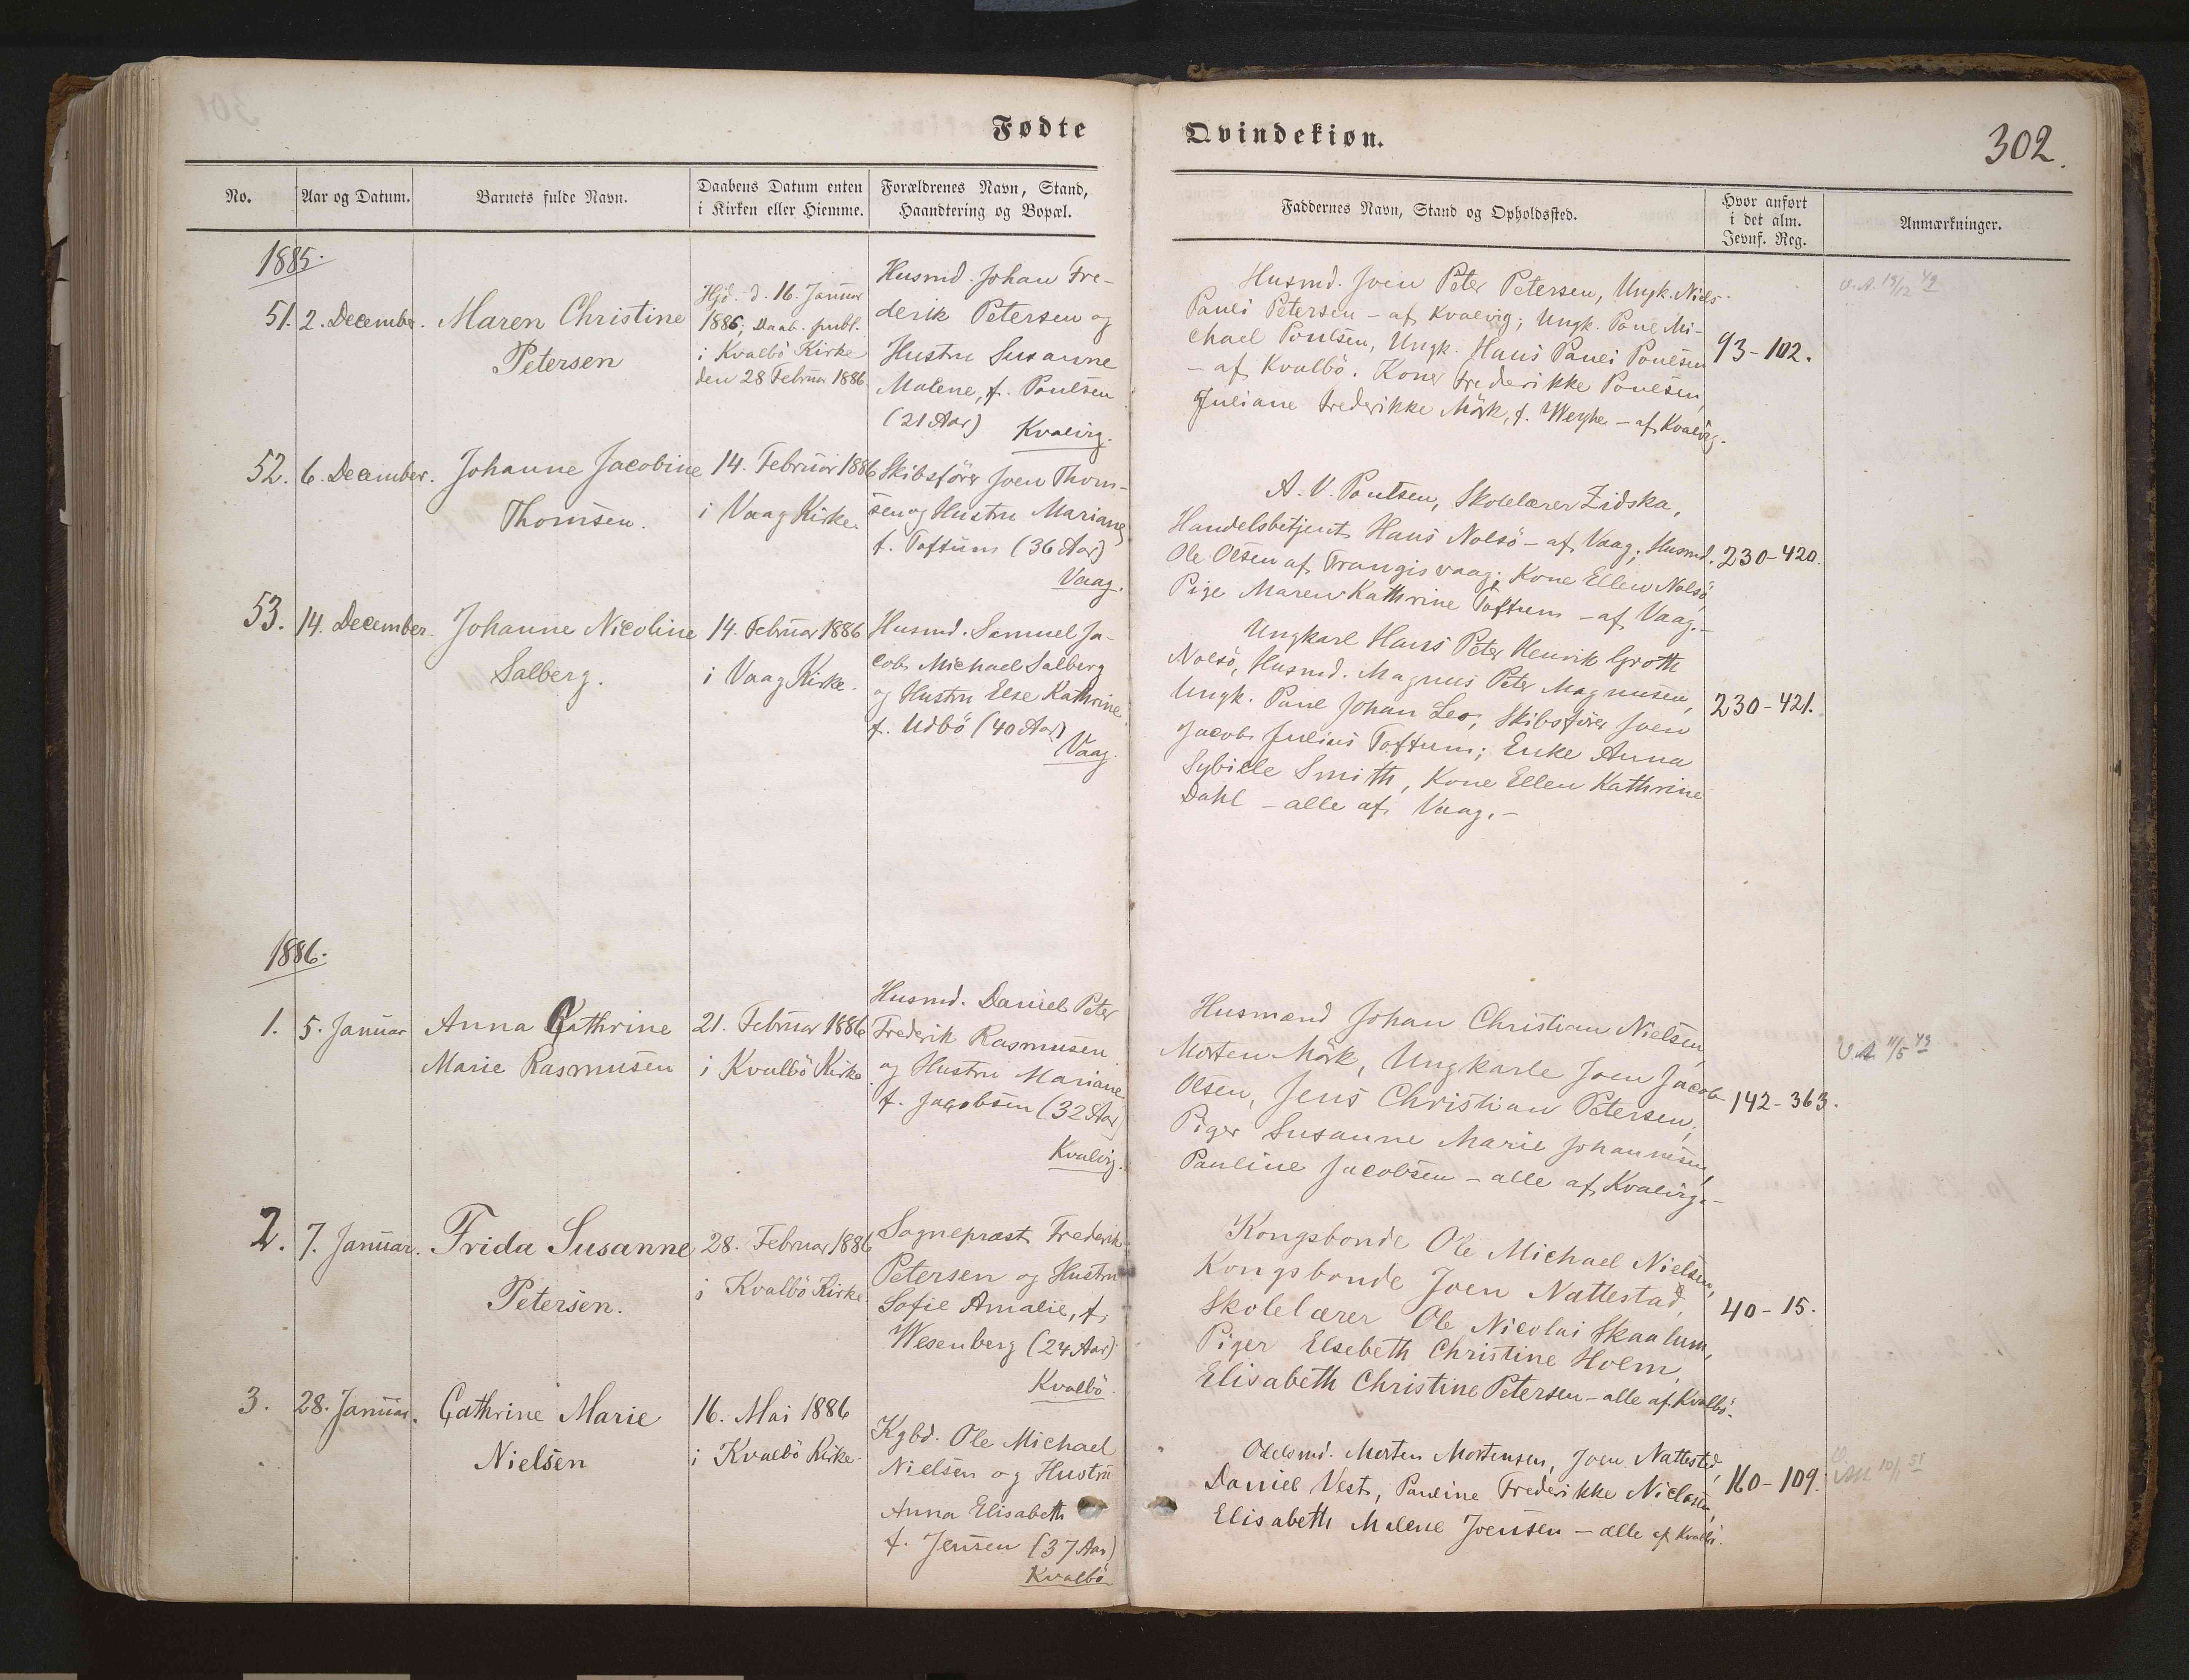 Fødte
Qvindekiøn.
302.
No.
Aar og Datum.
Barnets fulde Navn.
Daabens Datum enten
i Kirken eller Hiemme.
Forældrenes Navn, Stand,
Haandtering og Bopæl.
Faddernes Navn, Stand og Opholdssted.
Hvor anført
i det alm.
Jevnf. Reg.
Anmærkninger.
1885.
51.
2. December.
Maren Christine
Petersen
Hjd. d. 16. Januar
1886; Daab. publ.
i Kvalbö Kirke
den 28 Februar 1886
Husmd. Johan Fre-
derik Petersen og
Hustru Susanne
Malene, f. Poulsen
(21 Aar)
Kvalvig.
Husmd. Joen Peter Petersen, Ungk. Niels
Pauli Petersen - af Kvalvig; Ungk. Poul Mi-
chael Poulsen, Ungk. Hans Pauli Poulsen
- af Kvalbö. Koner Frederikke Poulsen,
Juliane Frederikke Mörk, f. Weyhe - af Kvalvig.
93-102.
V. A. 19/12 49
52.
6. December.
Johanne Jacobine
Thomsen.
14. Februar 1886
i Vaag Kirke.
Skibsförer Joen Thom-
sen og Hustru Mariane
f. Toftum (36 Aar)
Vaag.
A. V. Poulsen, Skolelærer Zidska,
Handelsbetjent Hans Nolsö - af Vaag; Husmd.
Ole Olsen af Trangisvaag; Kone Ellen Nolsö,
Pige Maren Kathrine Toftum - af Vaag.-
230-420.
53.
14. December
Johanne Nicoline
Salberg.
14. Februar 1886
i Vaag Kirke.
Husmd. Samuel Ja-
cob Michael Salberg
og Hustru Else Kathrine
f. Udbö (40 Aar)
Vaag.
Ungkarl Hans Peter Henrik Groth
Nolsö, Husmd. Magnus Peter Magnusen,
Ungk. Poul Johan Leo, Skibsförer Joen
Jacob Julius Toftum; Enke Anna
Sybille Smith, Kone Ellen Kathrine
Dahl - alle af Vaag.-
230-421.
1886.
1.
5. Januar
Anna Cathrine
Marie Rasmusen
21. Februar 1886
i Kvalbö Kirke
Husmd. Daniel Peter
Frederik Rasmusen
og Hustru Mariane
f. Jacobsen (32 Aar)
Kvalvig.
Husmænd Johan Christian Nielsen,
Morten Mörk, Ungkarle Joen Jacob
Olsen, Jens Christian Petersen,
Piger Susanne Marie Johannesen,
Pauline Jacobsen - alle af Kvalvig.-
142-363.
V. A. 11/5 49
2.
7. Januar.
Frida Susanne
Petersen.
28. Februar 1886
i Kvalbö Kirke
Sognepræst Frederik
Petersen og Hustru
Sofie Amalie, f.
Wesenberg (24 Aar)
Kvalbö.
Kongsbonde Ole Michael Nielsen,
Kongsbonde Joen Nattestad,
Skolelærer Ole Nicolai Skaalum,
Piger Elsebeth Christine Holm,
Elisabeth Christine Petersen - alle af Kvalbö.
40-15.
3.
28. Januar.
Cathrine Marie
Nielsen
16. Mai 1886
i Kvalbö Kirke.
Kgbd. Ole Michael
Nielsen og Hustru
Anna Elisabeth
f. Jensen (37 Aar)
Kvalbö
Odelsmd. Morten Mortensen, Joen Nattestad,
Daniel Vest, Pauline Frederikke Niclasen,
Elisabeth Malene Joensen - alle af Kvalbö.
160-109.
10/1 51